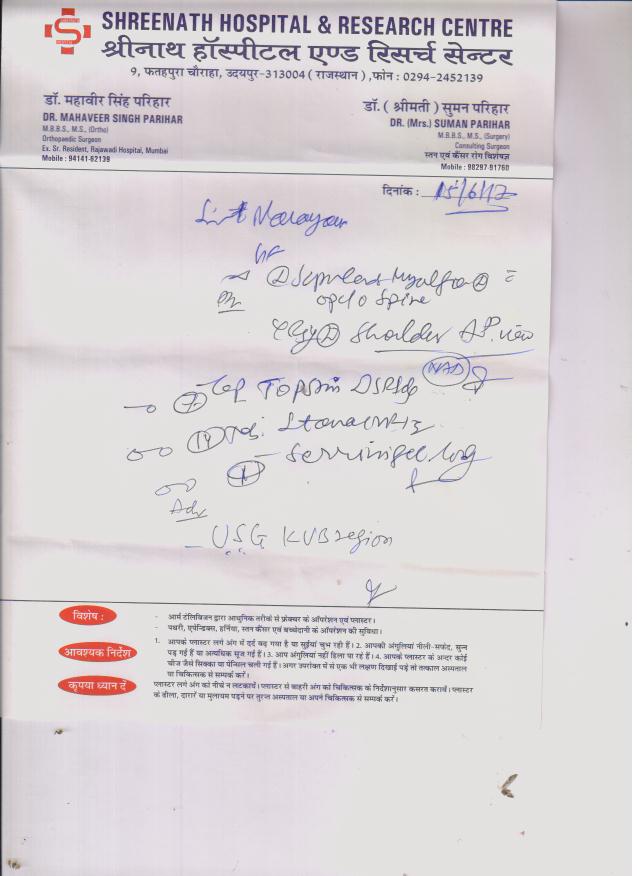 SHREENATH HOSPITAL & RESEARCH CENTRE
श्रीनाथ हॉस्पीटल एण्ड रिसर्च सेन्टर
9, फतहपुरा चौराहा, उदयपुर-313004 ( राजस्थान ) ,फोन : 0294-2452139
डॉ. महावीर सिंह परिहार
DR. MAHAVEER SINGH PARIHAR
M.B.B.S., M.S., (Ortho)
Orthopaedic Surgeon
Ex. Sr. Resident, Rajawadi Hospital, Mumbai
Mobile : 94141-62139
डॉ. ( श्रीमती ) सुमन परिहार
DR. (Mrs.) SUMAN PARIHAR
M.B.B.S., M.S., (Surgery)
Consulting Surgeon
स्तन एवं कैंसर रोग विशेषज्ञ
Mobile : 98297-91760
दिनांक : 15/6/17
Narayan
spine
Shoulder AP. view
NAD
Adv
- USG KUB region
विशेष :
- आर्म टेलिविजन द्वारा आधुनिक तरीकों से फ्रेक्चर के ऑपरेशन एवं प्लास्टर।
- पथरी, एपेन्डिक्स, हर्निया, स्तन कैंसर एवं बच्चेदानी के ऑपरेशन की सुविधा।
आवश्यक निर्देश
1. आपके प्लास्टर लगे अंग में दर्द बढ़ गया है या सुईयां चुभ रही हैं। 2. आपकी अंगुलियां नीली-सफेद, सुन्न
पड़ गई हैं या अत्यधिक सूज गई हैं। 3. आप अंगुलियां नहीं हिला पा रहे हैं। 4. आपके प्लास्टर के अन्दर कोई
चीज जैसे सिक्का या पेन्सिल चली गई हैं। अगर उपरोक्त में से एक भी लक्षण दिखाई पड़े तो तत्काल अस्पताल
या चिकित्सक से सम्पर्क करें।
कृपया ध्यान दें
प्लास्टर लगे अंग को नीचे न लटकायें। प्लास्टर से बाहरी अंग को चिकित्सक के निर्देशानुसार कसरत करायें। प्लास्टर
के ढीला, दारारें या मुलायम पड़ने पर तुरन्त अस्पताल या अपने चिकित्सक से सम्पर्क करें।